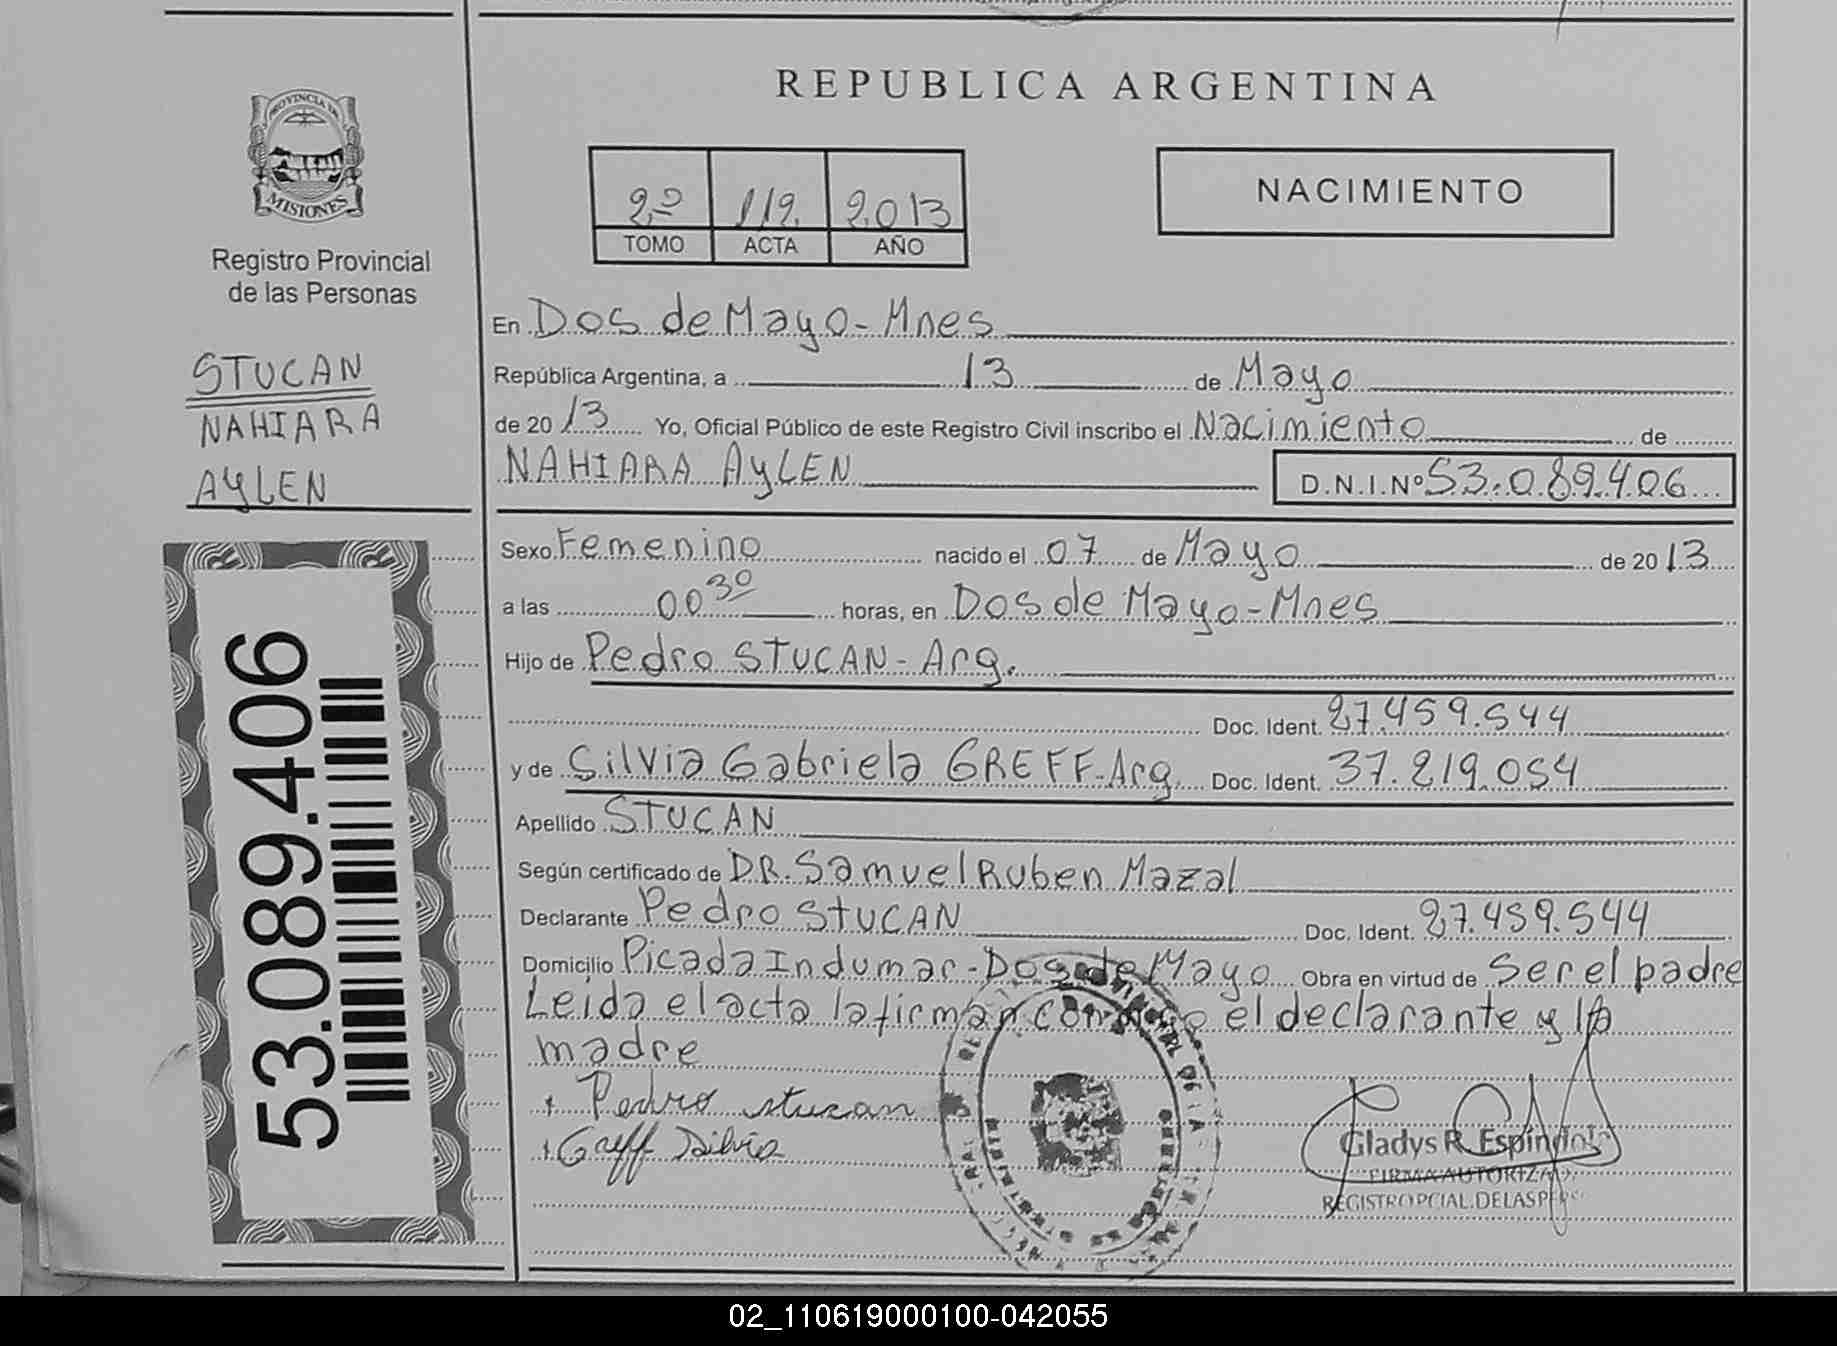 REPUBLICA ARGENTINA
PROVINCIA DE
MISIONES
Registro Provincial
de las Personas
STUCAN
NAHIARA
AYLEN
53.089.406
2º 119. 2013
TOMO ACTA AÑO
NACIMIENTO
En Dos de Mayo - Mnes
República Argentina, a 13 de Mayo
de 2013 Yo, Oficial Público de este Registro Civil inscribo el Nacimiento de
NAHIARA AYLEN D.N.I.Nº 53.089.406
Sexo Femenino nacido el 07 de Mayo de 2013
a las 00 30 horas, en Dos de Mayo - Mnes
Hijo de Pedro STUCAN - Arg.
Doc. Ident. 27.459.544
y de Silvia Gabriela GREFF - Arg Doc. Ident. 37.219.054
Apellido STUCAN
Según certificado de DR. Samuel Ruben Mazal
Declarante Pedro STUCAN Doc. Ident. 27.459.544
Domicilio Picada Indumar - Dos de Mayo Obra en virtud de Ser el padre
Leida el acta la firman conmigo el declarante y la
madre
Pedro stucan
Greff Silvia
Gladys R. Espíndola
FIRMA AUTORIZADA
REGISTRO PCIAL. DE LAS PERS
02_110619000100-042055